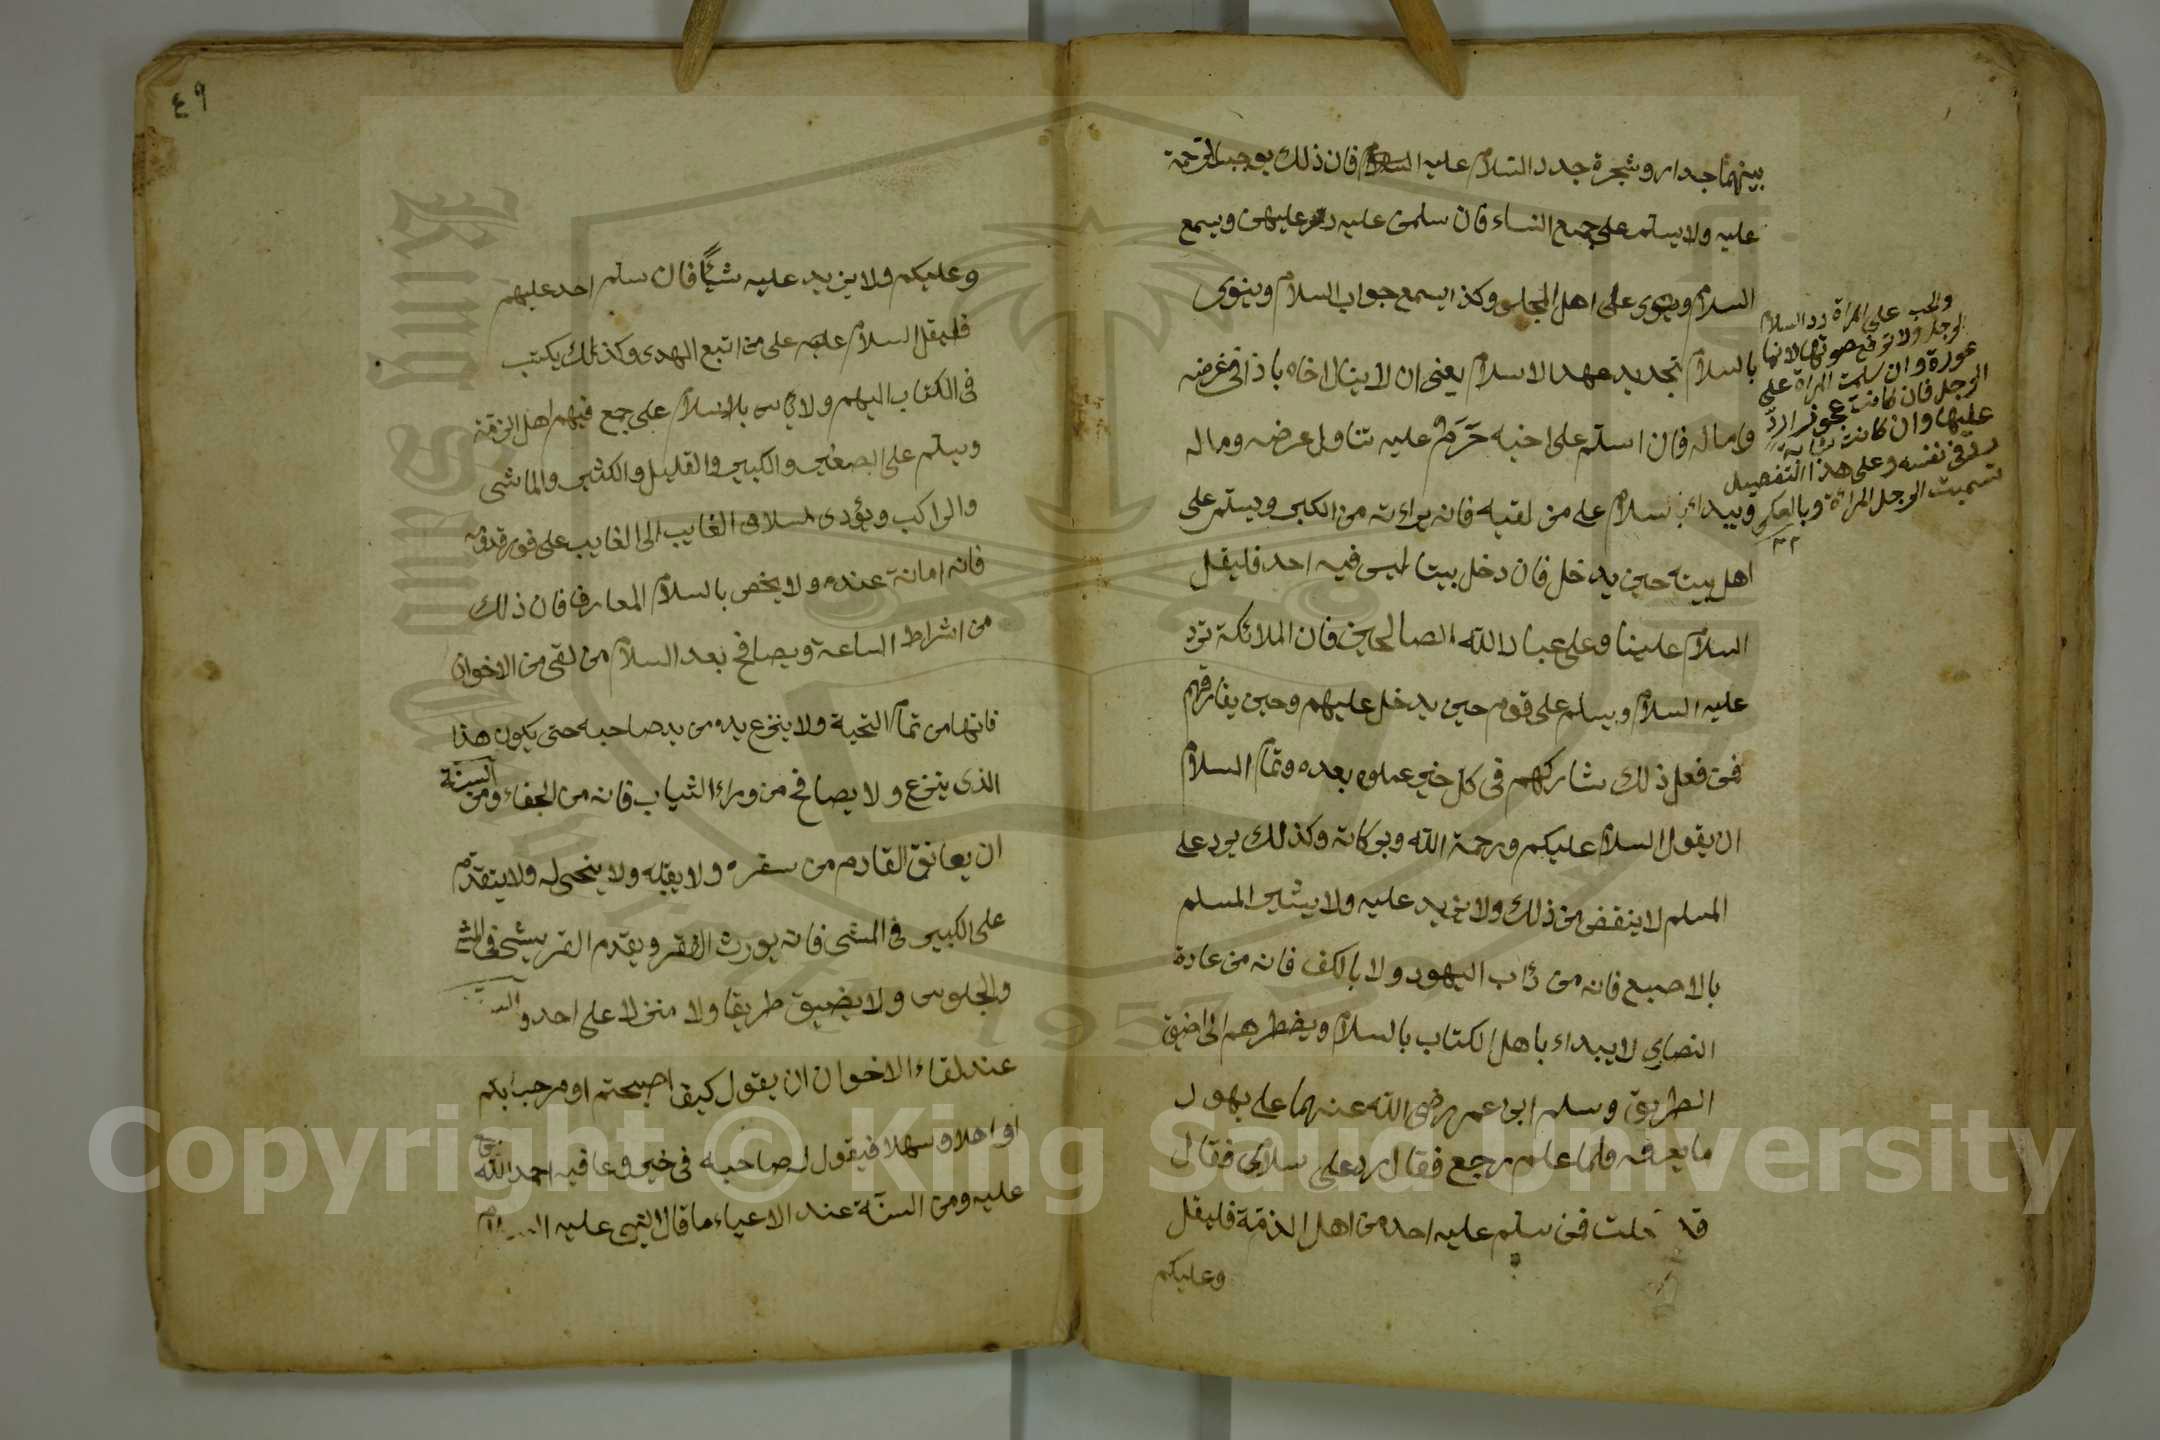 بينهما جدار وشجرة جدد السلام عليه السلام فان ذلك يوجب الرحمة
عليه ولا يسلم على جمع النساء فان سلمن عليه رد عليهن ويسمع
السلام وينوى على اهل المجلس وكذا يسمع جواب السلام وينوى
بالسلام تجديد عهد الاسلام يعنى ان لا ينال اخاه باذا فى عرضه
وماله فان اسلم على اخيه حرم عليه تناول عرضه وماله
ويبداء بالسلام على من لقيه فانه براءته من الكبر ويسلم على
اهل بيته حين يدخل فان دخل بيتا ليس فيه احد فليقل
السلام علينا وعلى عباد الله الصالحين فان الملائكة ترد
عليه السلام ويسلم على قوم حين يدخل عليهم وحين يفارقهم
فمن فعل ذلك شاركهم فى كل خير عملوه بعده وتمام السلام
ان يقول السلام عليكم ورحمة الله وبركاته وكذلك يرد على
المسلم لا ينقض من ذلك ولا يزيد عليه ولا يشير المسلم
بالاصبع فانه من داب اليهود ولا بالكف فانه من عادة
النصاري لا يبداء باهل الكتاب بالسلام ويضطرهم الى اضيق
الطريق وسلم ابن عمر رضى الله عنهما على يهول
ما يعرفه فلما علم رجع فقال رد على سلامى فقال
قد فعلت فمن سلم عليه احد من اهل الذمة فليقل
وعليكم
والجب على المراة رد السلام
لوجل ولا ترفع صوتها لانها
عورة وان سلمت المراة على
الرجل فان كانت عجوز ارد
عليها وان كانت شابة
رد فى نفسه وعلى هذا التفصيل
تشميت الرجل المراة وبالعكس
٤٩
وعليكم ولا يزيد عليه شيًا فان سلم احد عليهم
فليقل السلام عليه على من اتبع الهدى وكذلك يكتب
فى الكتاب اليهم ولا باس بالاسلام على جمع فيهم اهل الذمة
ويسلم على الصغير والكبير والقليل والكثير والماشى
والراكب ويؤدى سلام الغايب الى الغايب على فور قدومه
فانه امانة عنده ولا يخص بالسلام المعارف فان ذلك
من اشراط الساعة ويصافح بعد السلام من لقى من الاخوان
فانها من تمام التحية ولا ينزع يده من يد صاحبه حتى يكون هذا
الذى ينزع ولا يصافح من وراء الثياب فانه من الجفاء ومن السنة
ان يعانق القادم من سفره ولا يقبله ولا ينحى له ولا يتقدم
على الكبير فى المشى فانه يورث الفقر ويقدم القريشى فى المشى
والجلوس ولا يضيق طريقا ولا منزلا على احد والسنة
عند لقاء الاخوان ان يقول كيف اصبحتم او مرحبا بكم
او اهلا وسهلا فيقول له صاحبه فى خير وعافيه احمد الله
عليه ومن السنة عند الاعياء ما قال النبى عليه السلام
Copyright © King Saud University
King Saud University
1957